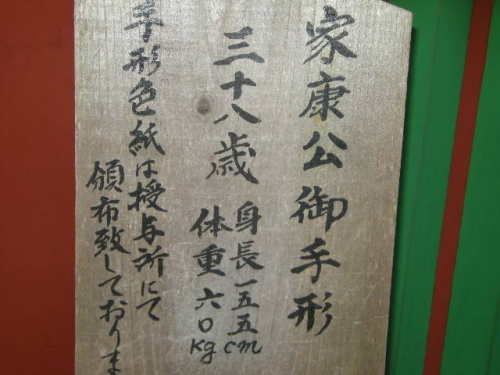 家康公御手形
三十八歳
身長一五五cm
体重六〇kg
手形色紙は授与所にて
頒布致しておりま